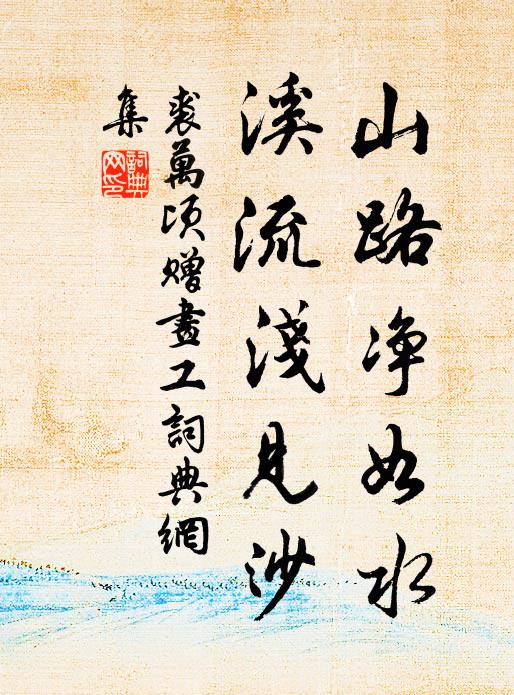 山路净如水
溪流淺見沙
裘萬頃贈畫工詞典網
集
詞典
网印